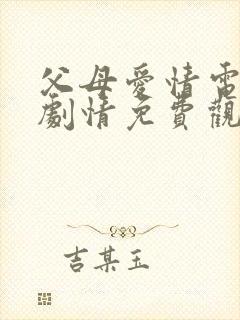 父母愛情電
劇情免費觀
吉某玉